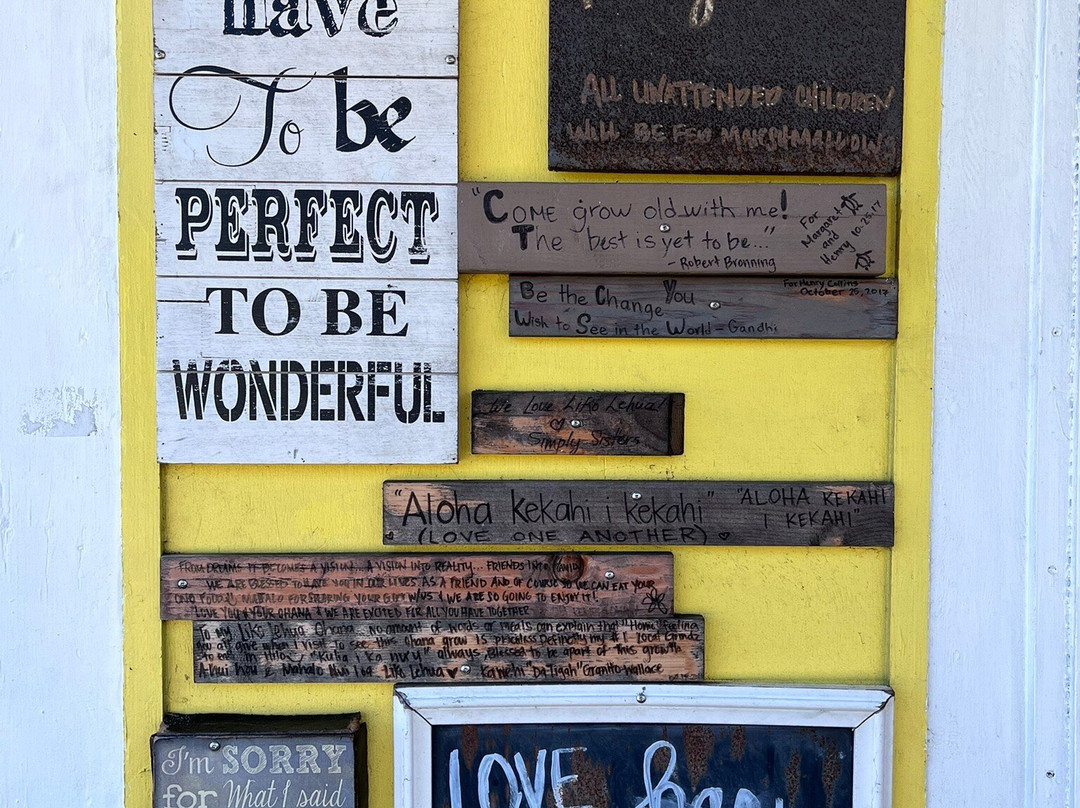 have
To be
PERFECT
TO BE
WONDERFUL
ALL UNATTENDED CHILDREN
WILL BE FED MARSHMALLOWS
"COME grow old with me!
The best is yet to be..."
- Robert Browning
For
Margaret
and
Henry 10.25.17
Be the Change You
Wish to See in the World - Gandhi
For Henry Collins
October 25, 2017
We Love Liko Lehua
Simply Sisters
"Aloha kekahi i kekahi"
(LOVE ONE ANOTHER)
"ALOHA KEKAHI
I KEKAHI"
FROM DREAMS IT BECOMES A VISION... A VISION INTO REALITY... FRIENDS INTO FAMILY
WE ARE BLESSED TO HAVE YOU IN OUR LIVES AS A FRIEND AND OF COURSE SO WE CAN EAT YOUR
ONO FOOD! MAHALO FOR SHARING YOUR GIFT W/US & WE ARE SO GOING TO ENJOY IT!
LOVE YOU & YOUR OHANA & WE ARE EXCITED FOR ALL YOU HAVE TOGETHER
To my Liko Lehua Ohana, no amount of words or meals can explain that "Home" feeling
you all give when I visit. To see this Ohana grow is priceless. Definetly my #1 Local Grindz
to eat in Hilo "Kulia i ka nuu" always, Blessed to be apart of this growth
A hui hou & Mahalo Nui Loa Liko Lehua Kawehi "Da Titah" Granito-Wallace
I'm SORRY
for What I said
LOVE